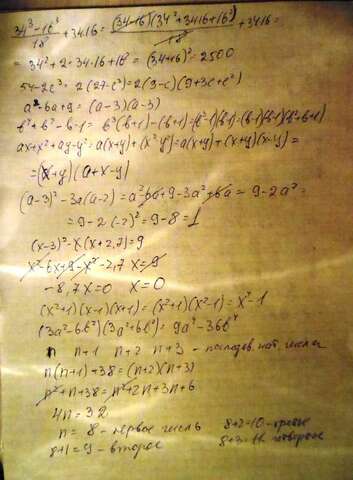 34³-16³/18 + 34·16 = (34-16)(34²+34·16+16²)/18 + 34·16 =
= 34² + 2·34·16 + 16² = (34+16)² = 2500
54-2c³ = 2(27-c³) = 2(3-c)(9+3c+c²)
a²-6a+9 = (a-3)(a-3)
ax+x²+ay-y² = a(x+y)+(x²-y²) = a(x+y)+(x+y)(x-y) =
= (x+y)(a+x-y)
(a-3)²-3a(a-2) = a²-6a+9-3a²+6a = 9-2a² =
= 9-2(-2)² = 9-8 = 1
(x-3)²-x(x+2,7) = 9
x²-6x+9-x²-2,7x = 9
-8,7x = 0 x = 0
(x²+1)(x-1)(x+1) = (x²+1)(x²-1) = x⁴-1
(3a²-6b²)(3a²+6b²) = 9a⁴-36b⁴
n n+1 n+2 n+3 - последов. нат. числа
n(n+1)+38 = (n+2)(n+3)
n²+n+38 = n²+2n+3n+6
4n = 32
n = 8 - первое число 8+2=10 - третье
8+1=9 - второе 8+3=11 четвертое